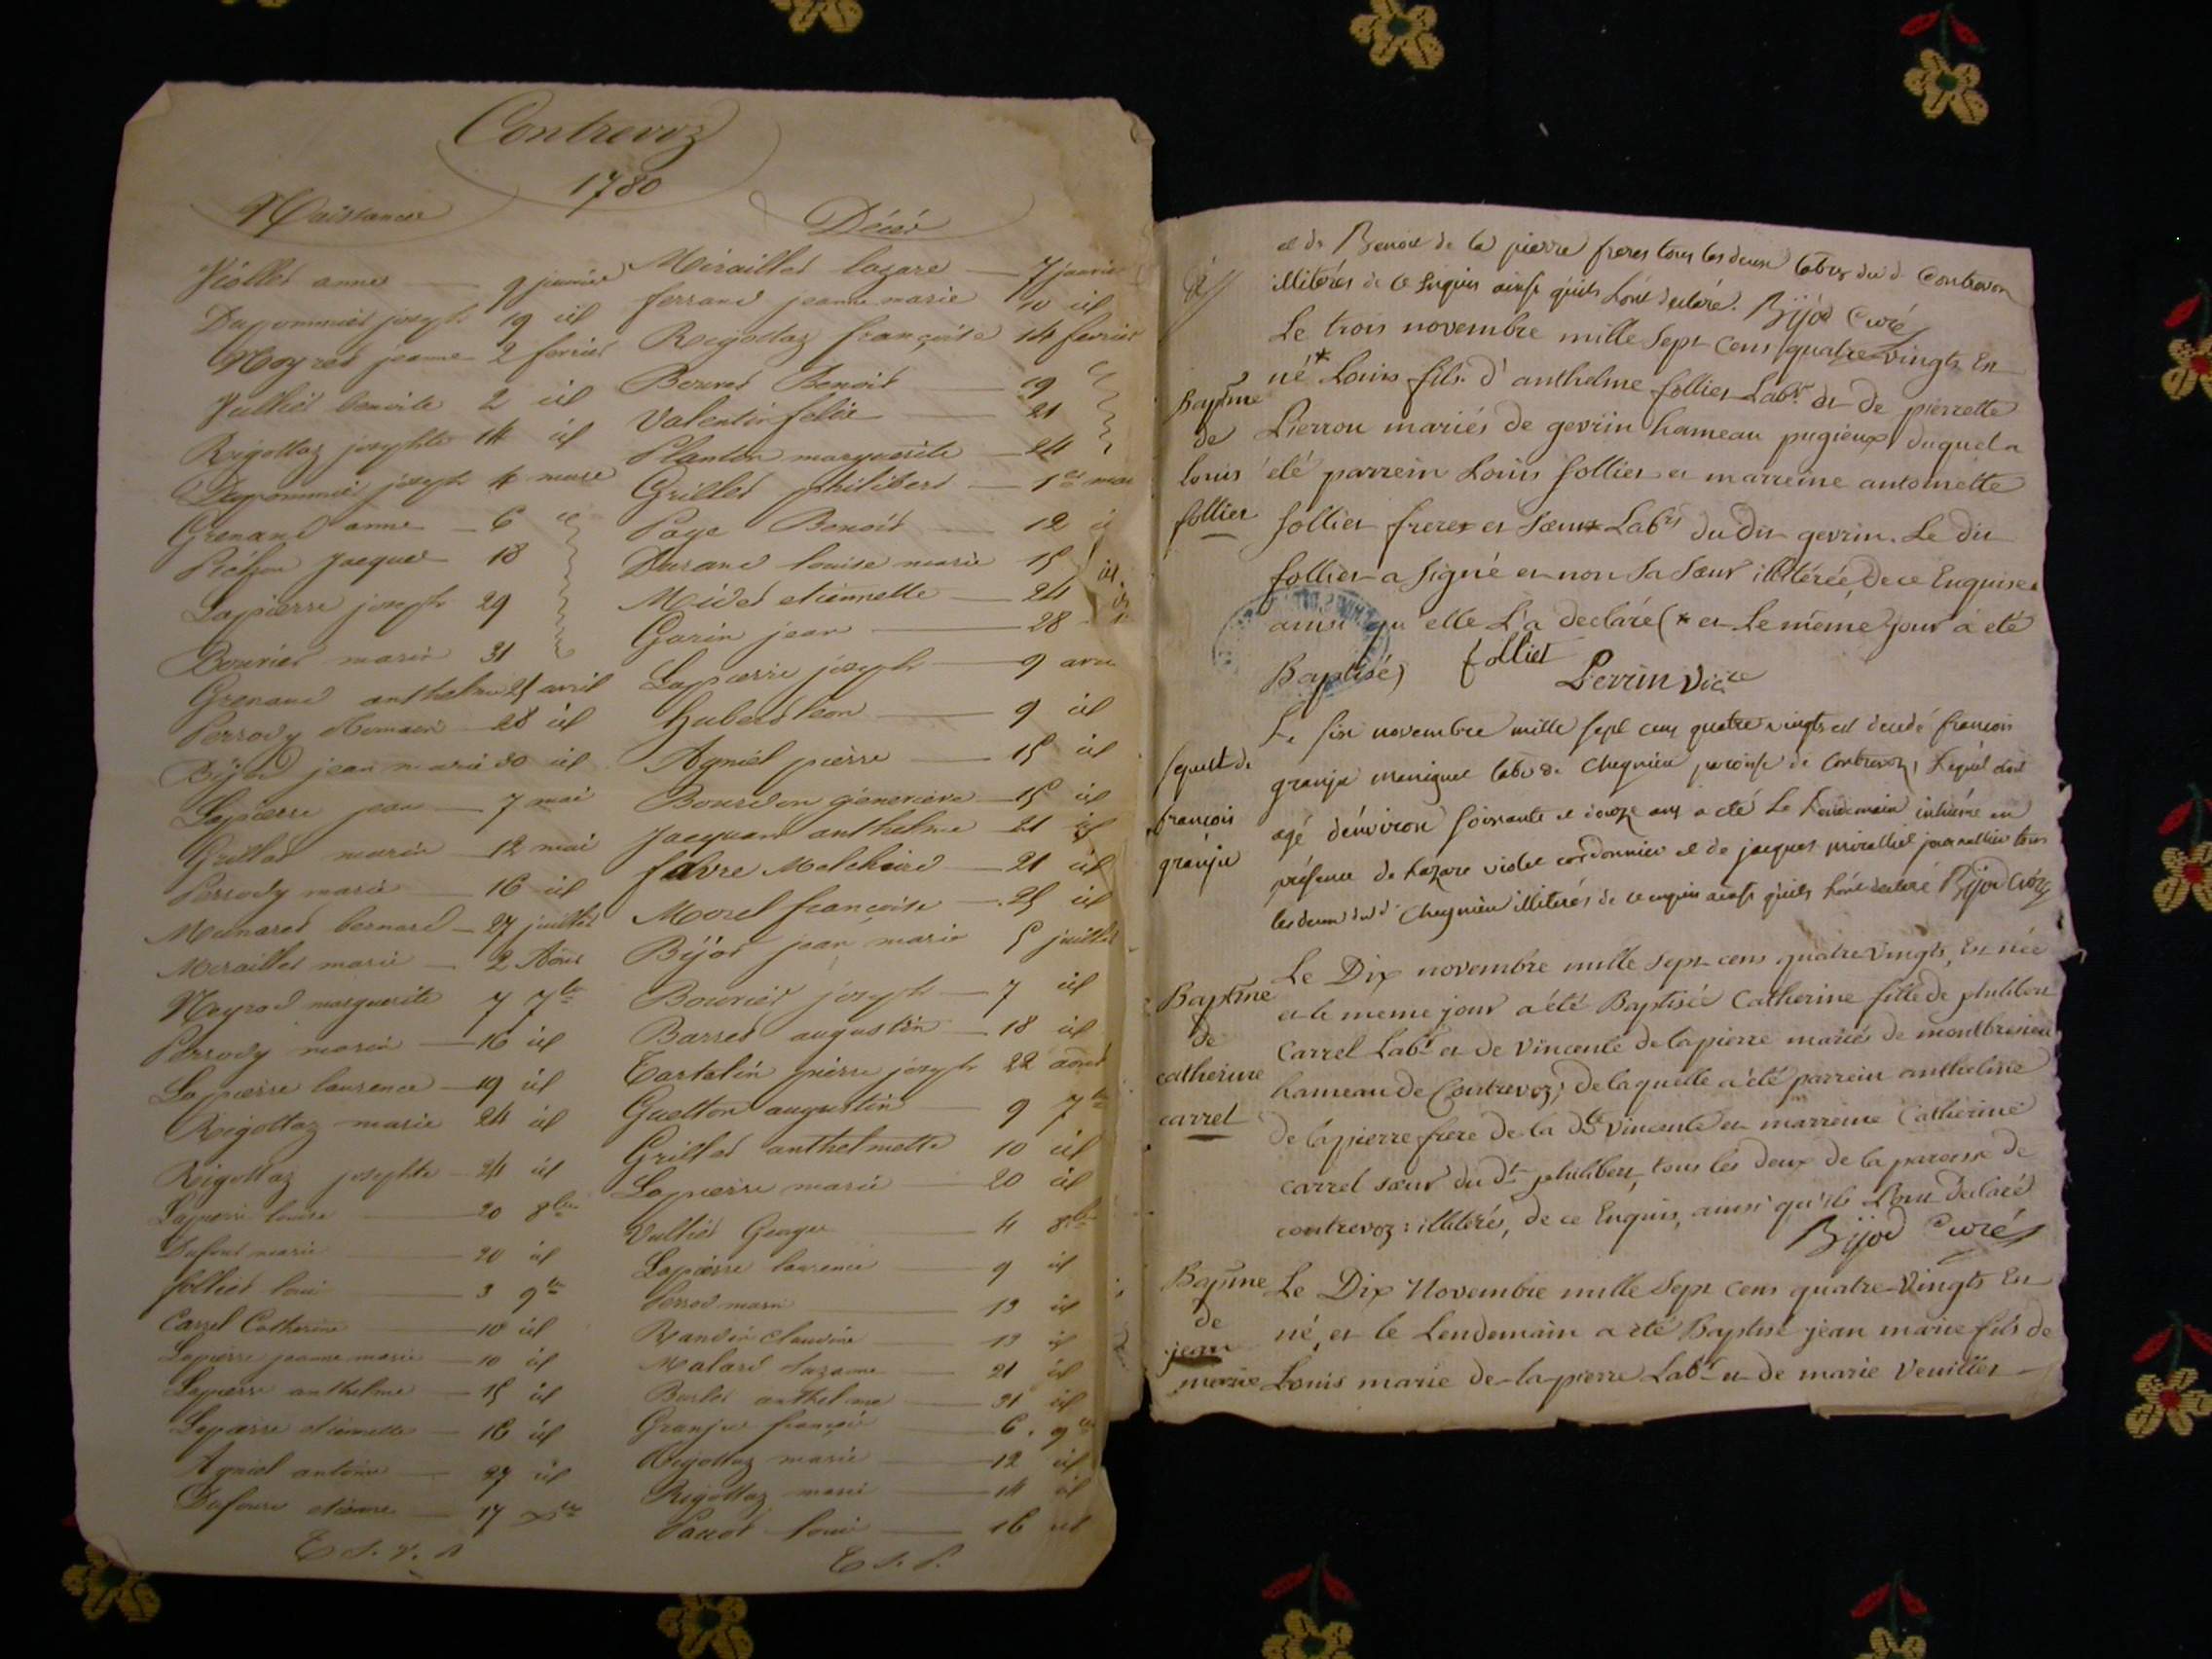 Contrevoz
1780
Naissances
Viollet anne 9 janvier
Dupommier joseph 19 id
Meyret jeanne 2 fevrier
Vulliet benoite 2 id
Rigottaz josephte 14 id
Dupommier joseph 4 mars
Grenand anne 6
Jacques 18
Lapierre joseph 29
Bouvier marie 31
Grenand anthelme 21 avril
Perrody 28 id
Bijod jean marie 30 id
Lapierre jean 7 mai
Grillet marie 12 mai
Perrody marie 16 id
bernard 27 juillet
Miraillet marie 2 Aout
Meyrod marguerite 7 7bre
Perrody marie 16 id
Lapierre laurence 19 id
Rigottaz marie 24 id
Rigottaz josephte 24 id
Lapierre louise 20 8bre
Dufour marie 20 id
folliet loui 3 9bre
Carrel Catherine 10 id
Lapierre jeanne marie 10 id
Lapierre anthelme 15 id
Lapierre etiennette 16 id
Agniel antoine 27 id
Dufour etienne 17 Xbre
T. S. V. P.
Décès
Miraillet lazare 7 janvier
ferrand jeanne marie 10 id
Rigottaz françoise 14 fevrier
Benoit 19
Valentin felix 21
Planton marguerite 24
Grillet philibert 1er mars
Page Benoit 12
Durand louise marie 15 id
Midet etiennette 24
Garin jean 28
Lapierre joseph 9
hubert leon 9 id
Agniel pierre 15 id
Bourdon genevieve 15 id
Jacquand anthelme 21 id
favre Melchior 21 id
Morel françoise 25 id
Bijod jean marie 5 juillet
Bouvier joseph 7 id
Barret augustin 18 id
Tartelin pierre joseph 22 aout
Guetton augustin 9 7bre
Grillet anthelmette 10 id
Lapierre marie 20 id
Vulliet George 4 8bre
Lapierre laurence 9 id
marie 13 id
claudine 13 id
Malard 21 id
anthelme 31 id
Granju françois 6 9bre
Rigottaz marie 12 id
Rigottaz marie 14 id
loui 16 id
T. S. P.
et de Benoit de la pierre freres tous les deux labrs dud Contrevoz
illiterés de ce Enquis ainsi qu'ils L'ont declaré. Bijod Curé
Baptme
de
louis
folliet
Le trois novembre mille Sept Cens quatre-vingts En
né* Louis fils d'anthelme folliet Labr et de pierrette
Pierron mariés de gevrin hameau pugieux duquel a
été parrein Louis folliet et marreine antoinette
folliet frere et Sœur Labrs du dit gevrin. Le dit
folliet a Signé et non Sa Sœur illitérée, de ce Enquise
ainsi qu'elle L'a declaré (* et Le même jour a été
Baptisé) folliet
Perrin Vice
Sepult de
françois
granju
Le six novembre mille sept cens quatre vingts est decedé françois
granju labr de Chegnieu paroisse de Contrevoz, Lequel etoit
agé d'environ soixante et douze ans a eté Le Lendemain inhumé en
présence de Lazare violet cordonnier et de jacques miralliet journallier tous
les deux dud Chegnieu illiterés de ce enquis ainsi qu'ils L'ont declaré Bijod Curé
Baptme
de
catherine
carrel
Le Dix novembre mille Sept cens quatre Vingts, Est née
et le meme jour a été Baptisée Catherine fille de philibert
Carrel Labr et de Vincente de lapierre mariés de montbreisieu
hameau de Contrevoz; de laquelle a été parrein anthelme
de lapierre frere de la dte Vincente et marreine Catherine
carrel sœur du dt philibert, tous les deux de la paroisse de
contrevoz: illitérés, de ce Enquis, ainsi qu'ils L'ont declaré
Bijod Curé
Baptme
de
jean
marie
Le Dix Novembre mille Sept cens quatre-Vingts En
né, et le Lendemain a été Baptisé jean marie fils de
Louis marie de-la-pierre Labr et de marie Veuillet